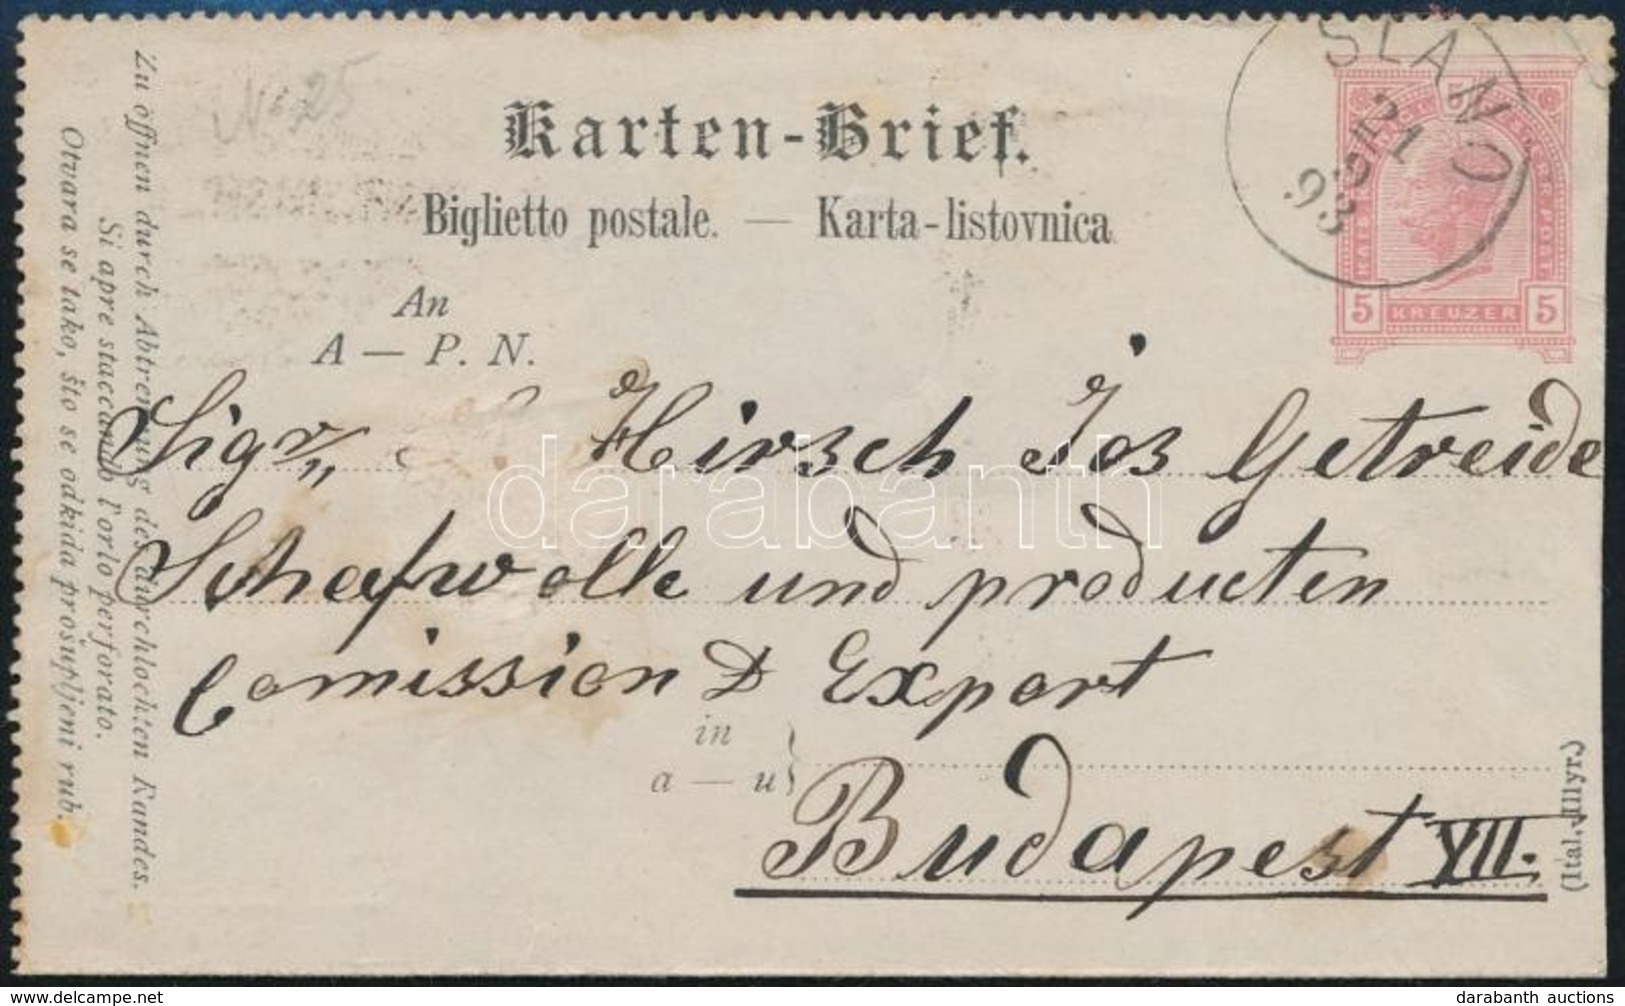 Karten-Brief.
Biglietto postale. — Karta-listovnica
An
A — P. N.
Sigr. Hirsch Jos Getreide
Schafwolle und producten
Comission & Export
in
a — u
Budapest VII.
(Ital. Illyr.)
Zu öffnen durch Abtrennung des durchlochten Randes.
Si apre staccando l'orlo perforato.
Otvara se tako, što se odkida prošupljeni rub.
No 25
SLANO
21
93
5 KREUZER 5
darabanth
darabanth auctions